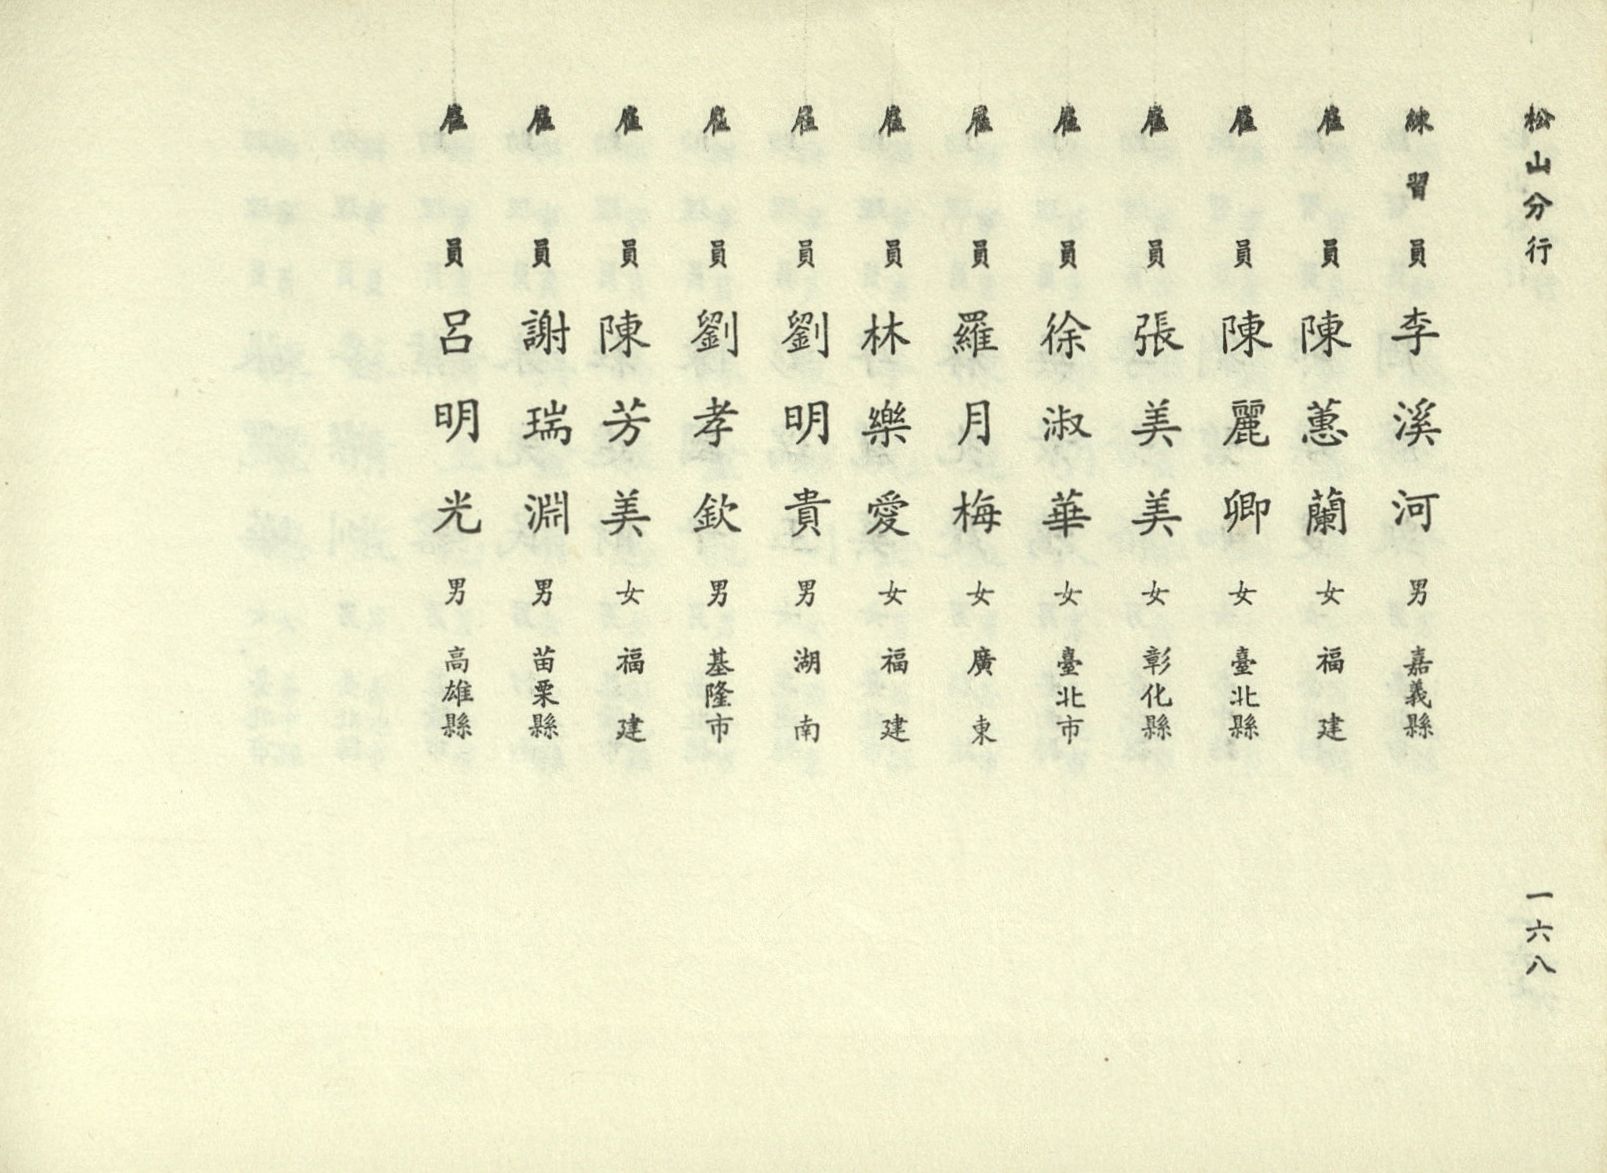 松山分行
一六八
練習員 李溪河 男 嘉義縣
雇員 陳蕙蘭 女 福建
雇員 陳麗卿 女 臺北縣
雇員 張美美 女 彰化縣
雇員 徐淑華 女 臺北市
雇員 羅月梅 女 廣東
雇員 林樂愛 女 福建
雇員 劉明貴 男 湖南
雇員 劉孝欽 男 基隆市
雇員 陳芳美 女 福建
雇員 謝瑞淵 男 苗栗縣
雇員 呂明光 男 高雄縣